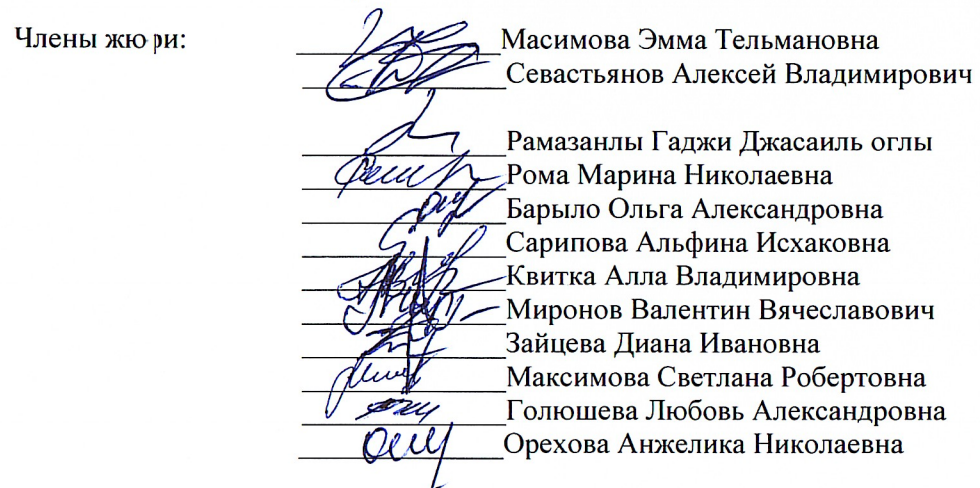 Члены жюри: Масимова Эмма Тельмановна
Севастьянов Алексей Владимирович
Рамазанлы Гаджи Джасаиль оглы
Рома Марина Николаевна
Барыло Ольга Александровна
Сарипова Альфина Исхаковна
Квитка Алла Владимировна
Миронов Валентин Вячеславович
Зайцева Диана Ивановна
Максимова Светлана Робертовна
Голюшева Любовь Александровна
Орехова Анжелика Николаевна